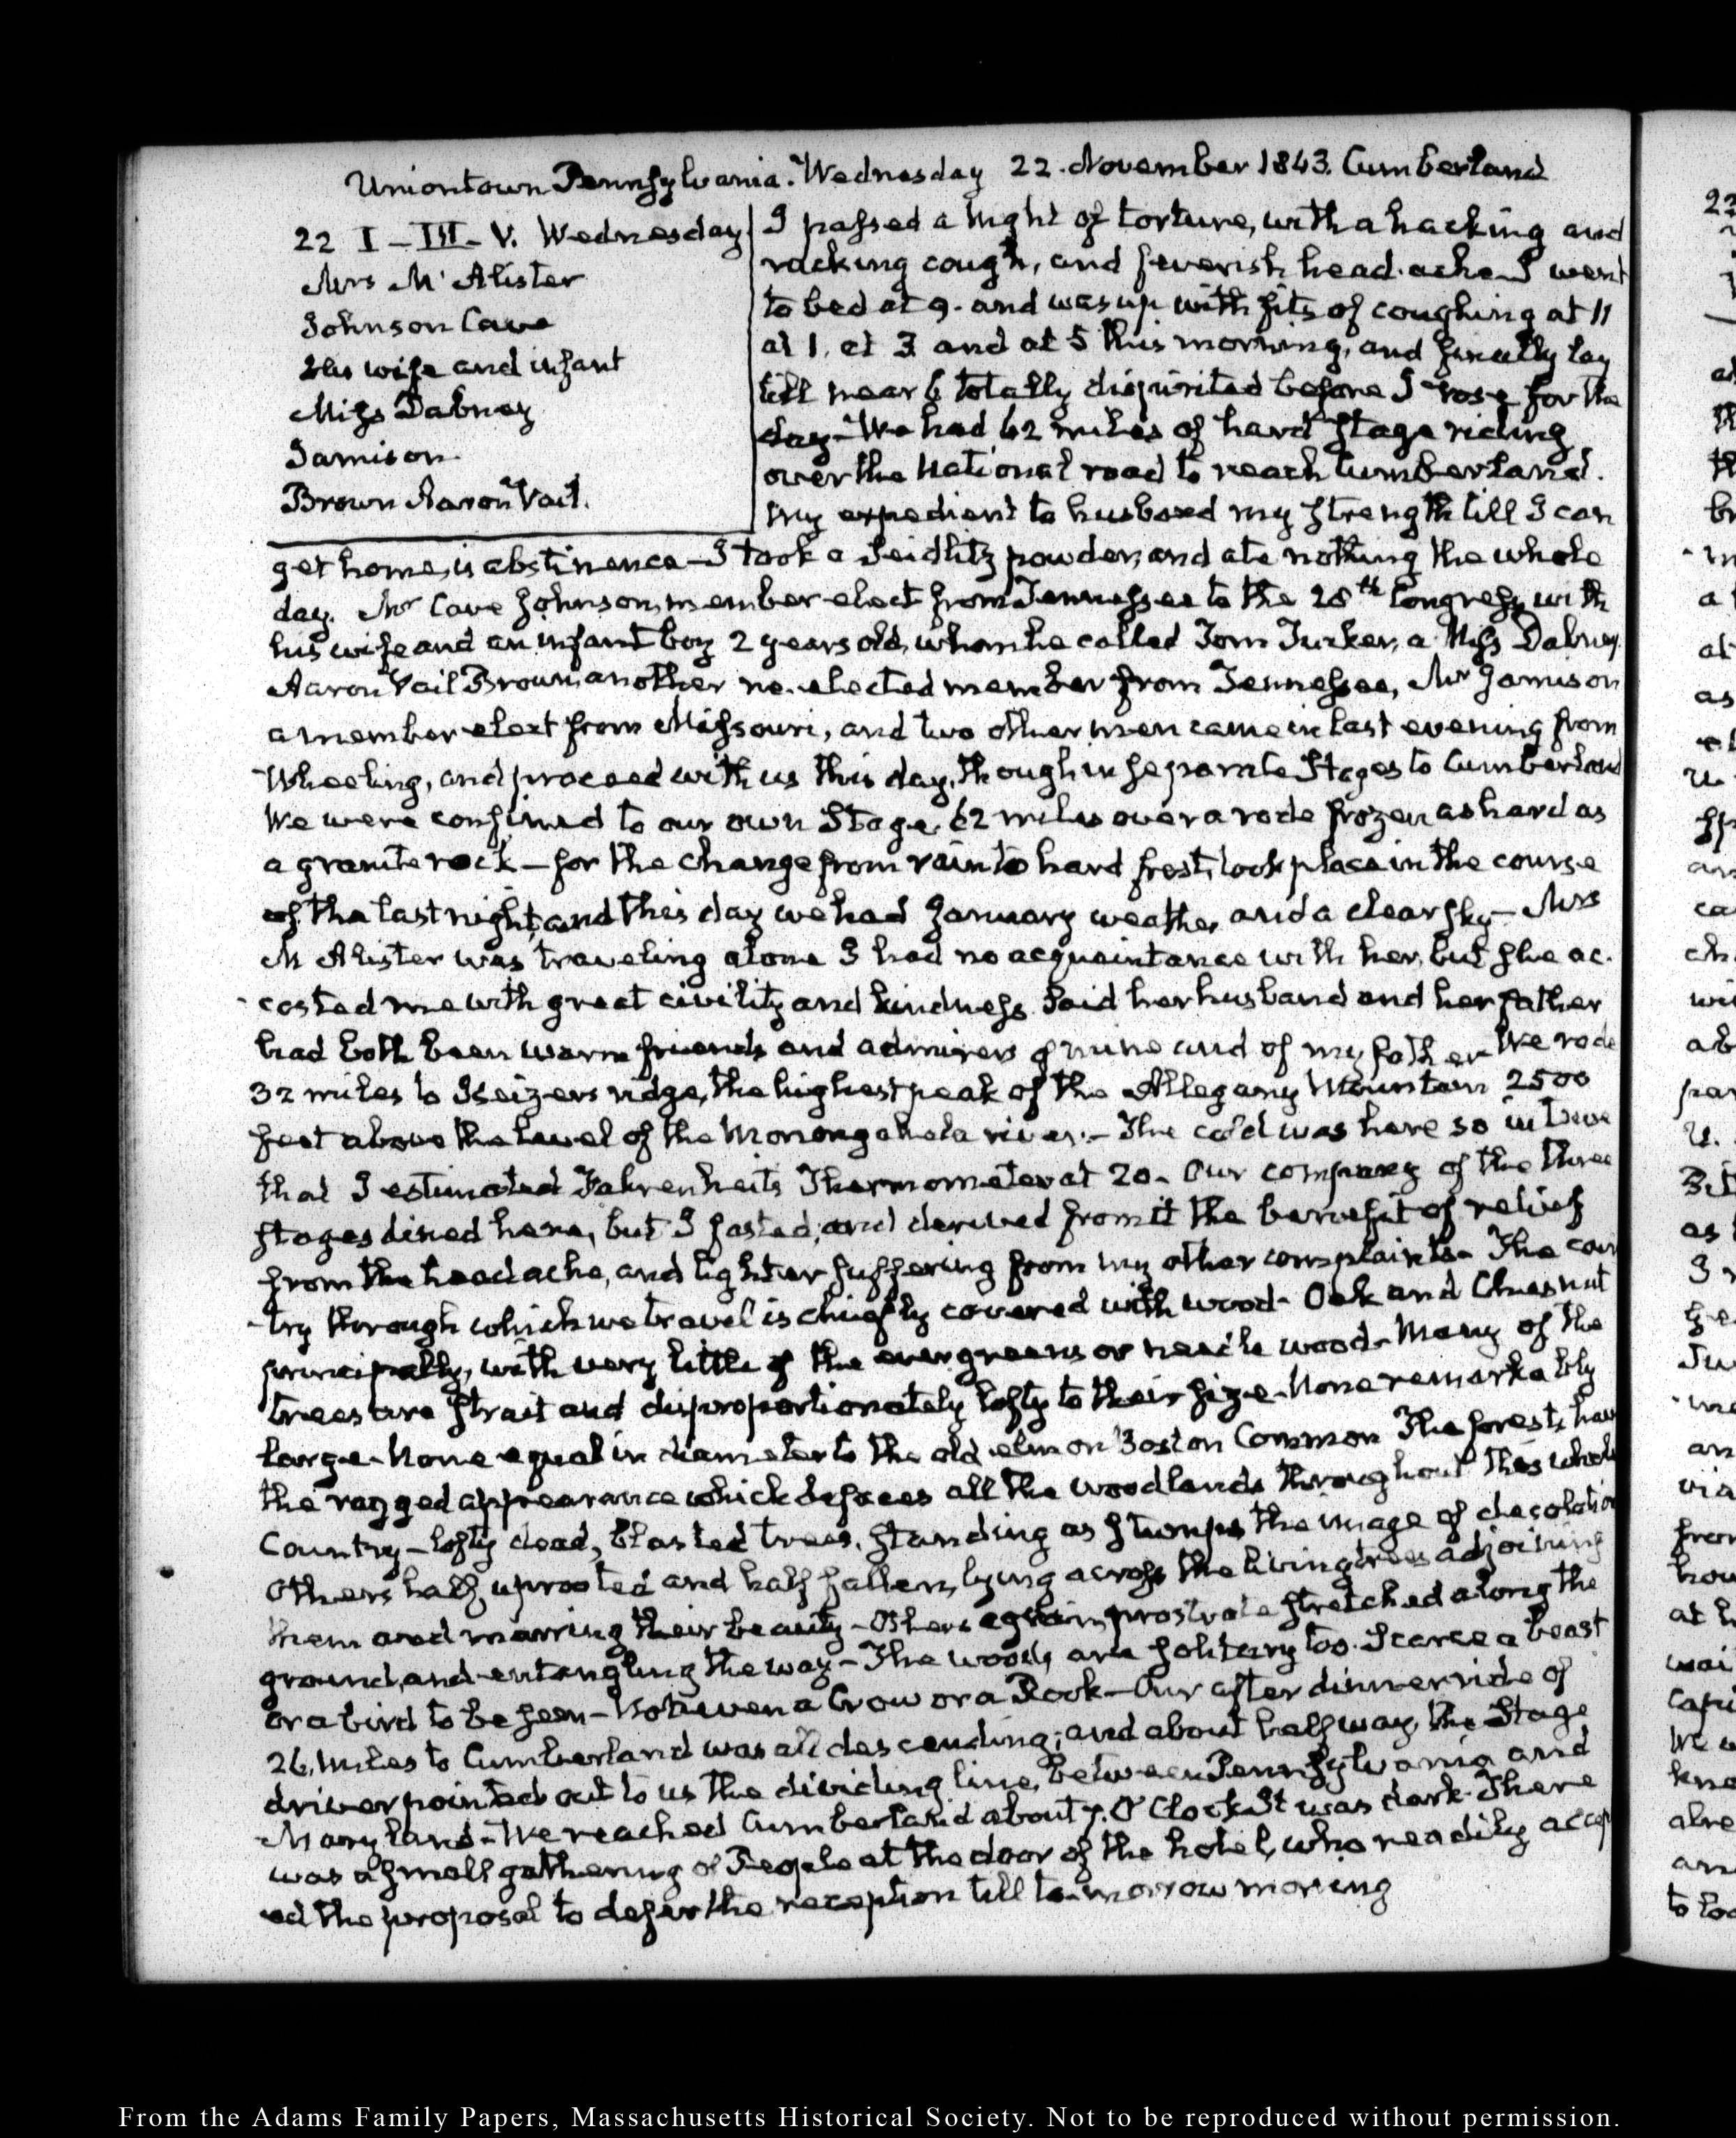 Uniontown Pennsylvania. Wednesday 22. November 1843. Cumberland
22 I – III – V. Wednesday
Mrs McAlister
Johnson Cave
His wife and infant
Miss Dabney
Jamison
Brown Aaron Vail.
I passed a night of torture, with a hacking and
racking cough, and feverish head-ache I went
to bed at 9. and was up with fits of coughing at 11
at 1. at 3 and at 5 this morning, and finally lay
till near 6 totally dispirited before I rose for the
day – We had 62 miles of hard stage riding
over the National road to reach Cumberland.
My expedient to husband my strength till I can
get home, is abstinence – I took a Seidlitz powder, and ate nothing the whole
day. Mr Cave Johnson, member elect from Tennessee to the 28th Congress, with
his wife and an infant boy 2 years old, whom he called Tom Tucker, a Miss Dabney.
Aaron Vail Brown, another re-elected member from Tennessee, Mr Jamison
a member elect from Missouri, and two other men came in last evening from
Wheeling, and proceed with us this day, though in separate Stages to Cumberland
We were confined to our own Stage, 62 miles over a rode frozen as hard as
a granite rock – for the change from rain to hard frost, took place in the course
of the last night, and this day we had January weather, and a clear sky – Mrs
McAlister was traveling alone I had no acquaintance with her, but she ac-
costed me with great civility and kindness. Said her husband and her father
had both been warm friends and admirers of mine and of my father We rode
32 miles to Keizers ridge, the highest peak of the Allegany Mountain 2500
feet above the level of the Monongahela river. – The cold was here so intense
that I estimated Fahrenheits Thermometer at 20. Our company of the three
stages dined here, but I fasted, and derived from it the benefit of relief
from the headache, and lighter suffering from my other complaints. The coun
-try through which we travel is chiefly covered with wood – Oak and Chesnut
principally, with very little of the evergreens or needle wood – Many of the
trees are strait and disproportionately lofty to their size – None remarkably
large – None equal in diameter to the old elm on Boston Common The forests have
the ragged appearance which defaces all the woodlands throughout this whole
Country – lofty dead, blasted trees, standing as stumps the image of desolation
Others half uprooted and half fallen, lying across the living trees adjoining
them and marring their beauty – Others again, prostrate stretched along the
ground, and entangling the way – The woods are solitary too. Scarce a beast
or a bird to be seen – Not even a Crow or a Rook – Our after dinner ride of
26. miles to Cumberland was all descending; and about half way, the Stage
driver pointed out to us the dividing line, between Pennsylvania and
Maryland – We reached Cumberland about 7. O'Clock It was dark. There
was a small gathering of People at the door of the hotel, who readily accept
ed the proposal to defer the reception till to-morrow morning
From the Adams Family Papers, Massachusetts Historical Society. Not to be reproduced without permission.